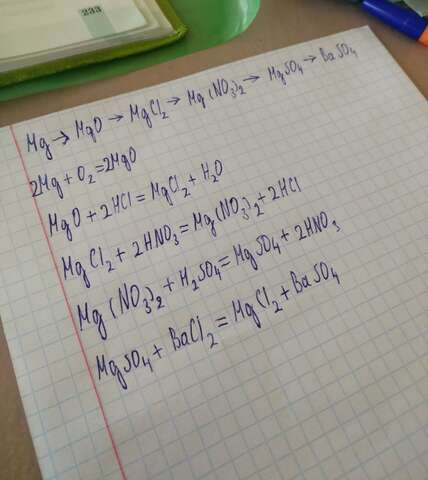 233
Mg → MgO → MgCl₂ → Mg(NO₃)₂ → MgSO₄ → BaSO₄
2Mg + O₂ = 2MgO
MgO + 2HCl = MgCl₂ + H₂O
MgCl₂ + 2HNO₃ = Mg(NO₃)₂ + 2HCl
Mg(NO₃)₂ + H₂SO₄ = MgSO₄ + 2HNO₃
MgSO₄ + BaCl₂ = MgCl₂ + BaSO₄